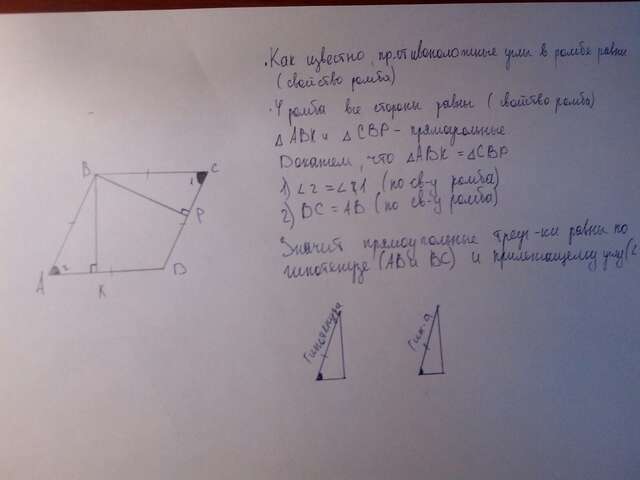 . Как известно, противоположные углы в ромбе равны
(свойство ромба)
. У ромба все стороны равны (свойство ромба)
△ABK и △CBP - прямоугольные
Докажем, что △ABK = △CBP
1) ∠2 = ∠1 (по св-у ромба)
2) BC = AB (по св-у ромба)
Значит прямоугольные треуг-ки равны по
гипотенузе (AB и BC) и прилежащему углу (2
B
C
1
P
A
2
K
D
Гипотенуза
Гип-а